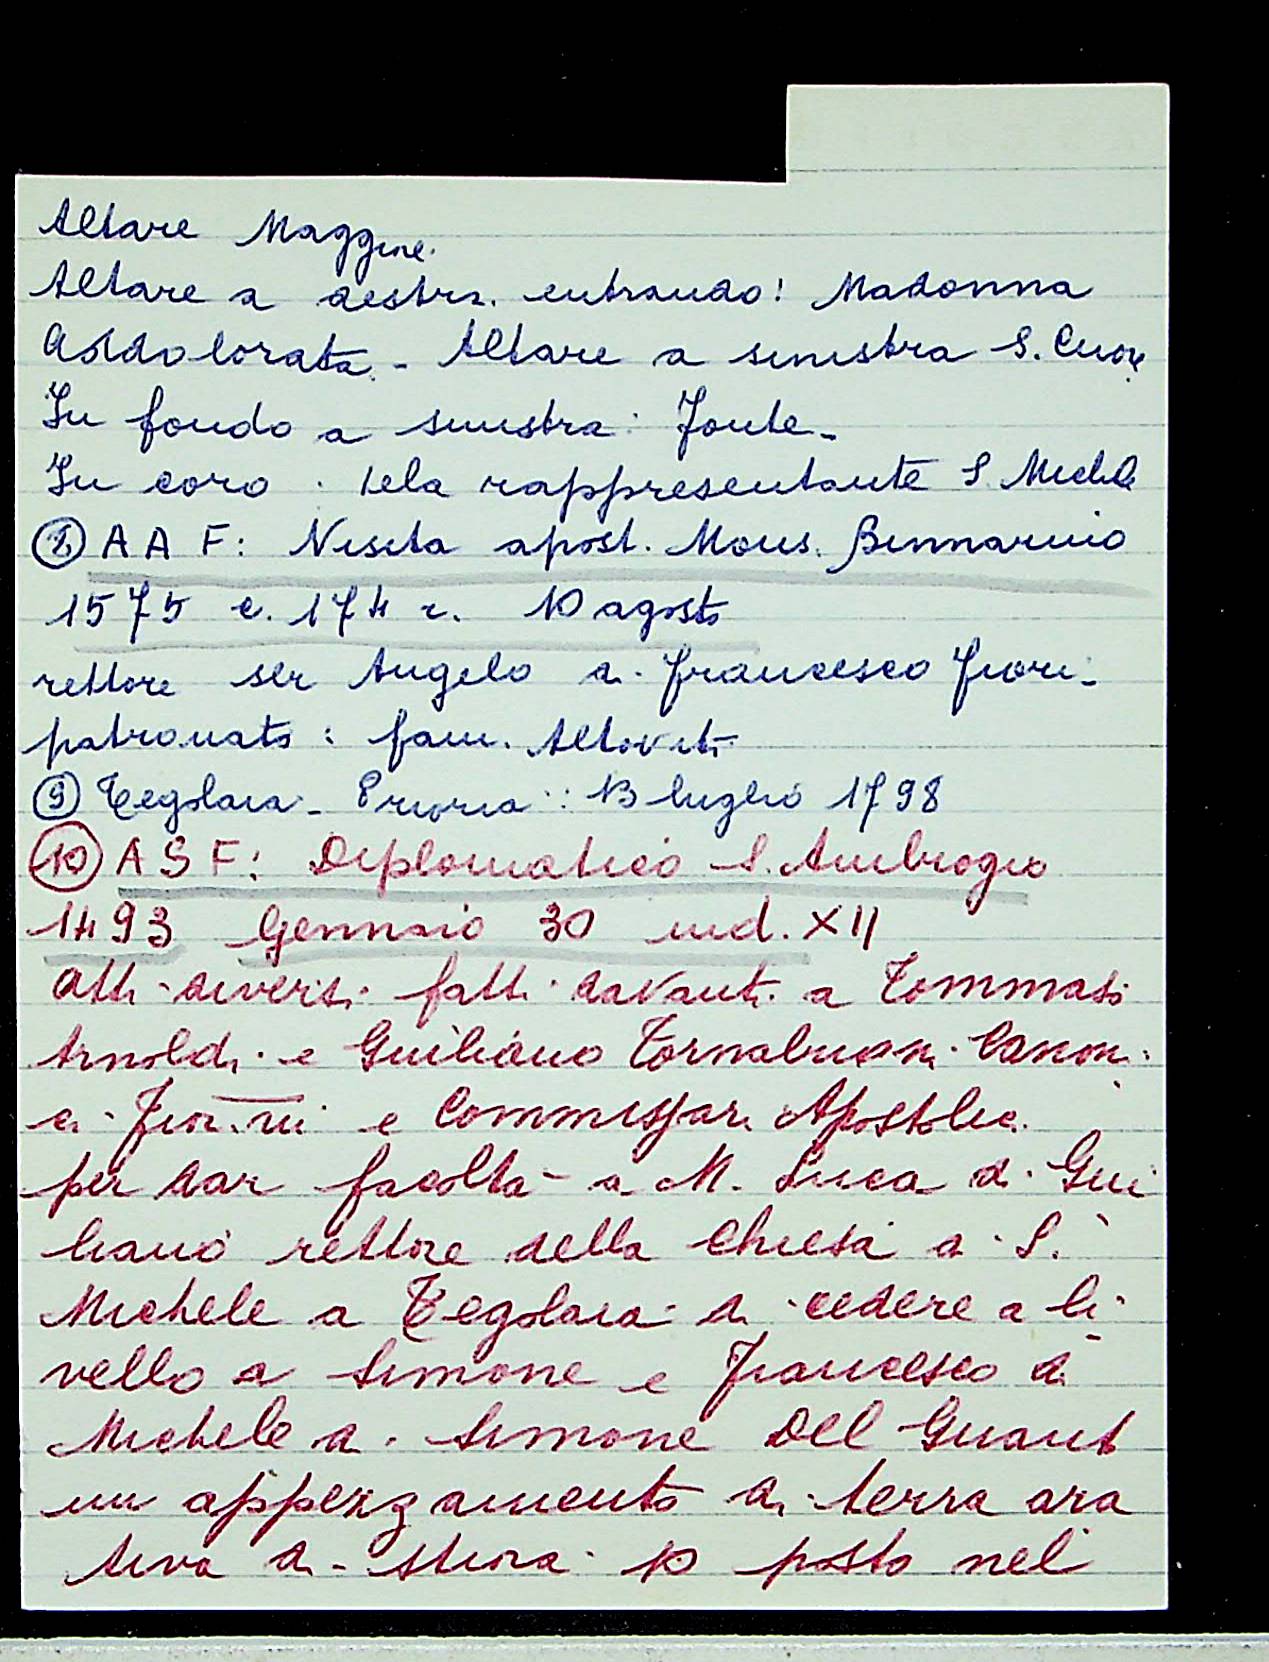 Altare Maggiore.
Altare a destra entrando: Madonna
Addolorata. - Altare a sinistra S. Cuore
In fondo a sinistra: Fonte -
In coro: tela rappresentante S. Michele
⑧ A A F: Visita apost. Mons. Binnarino
1575 c. 174 r. 10 agosto
rettore ser Angelo di Francesco Fiori -
patronato: fam. Altoviti
⑨ Tegolaia - Prioria: 13 luglio 1798
⑩ A S F: Diplomatico S. Ambrogio
1493 Gennaio 30 ind. XII
atti diversi fatti davanti a Tommaso
Arnoldi e Guiliano Tornabuoni Canoni
ci Fior.ni e Commissari Apostolici
per dar facoltà a M. Luca di Gui
liano rettore della Chiesa di S.
Michele a Tegolaia di cedere a li-
vello a Simone e Francesco di
Michele di Simone Del Guant
un appezzamento di terra ara
tiva di stiora 10 posto nel